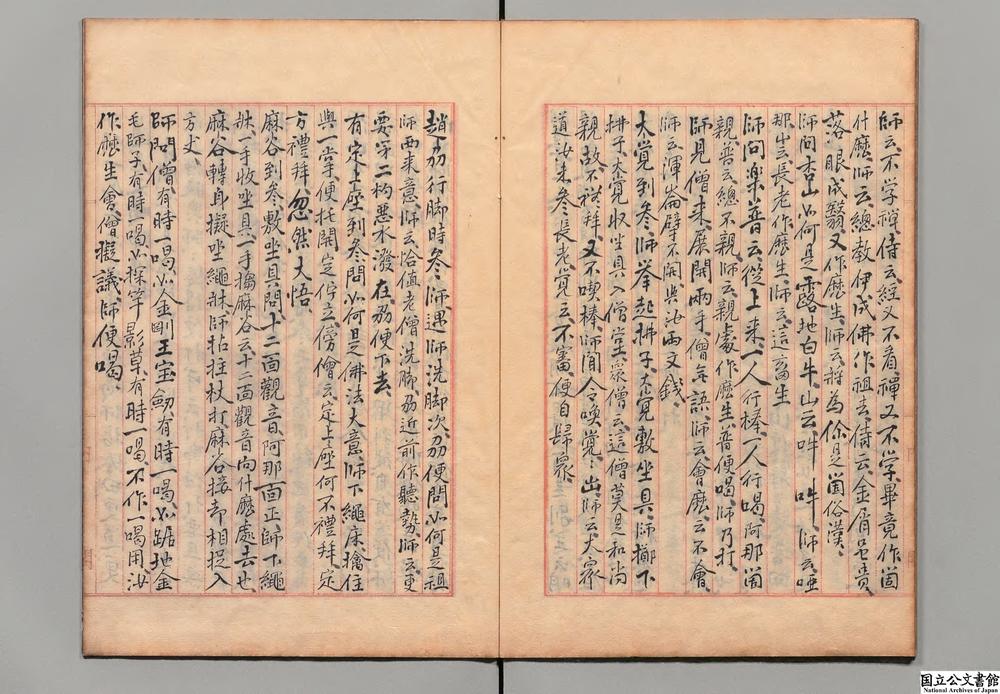 師云、不学禅、侍云、経又不看、禅又不学、畢竟作箇
什麼、師云、総教伊成佛作祖去、侍云、金屑雖貴、
落眼成翳、又作麼生、師云、将為你是箇俗漢、
師問杏山、如何是露地白牛、山云、吽吽、師云、唖
那、山云、長老作麼生、師云、這畜生
師問楽普云、従上来、一人行棒、一人行喝、阿那箇
親、普云、総不親、師云、親處作麼生、普便喝、師乃打、
師見僧来、展開両手、僧無語、師云、會麼、云不會、
師云、渾崙擘不開、與汝両文銭、
大覚到参、師挙起拂子、大覚敷坐具、師擲下
拂子、大覚収坐具、入僧堂、衆僧云、這僧莫是和尚
親故、不礼拜、又不喫棒、師聞、令喚覚、覚出、師云、大衆
道、汝未参長老、覚云、不審、便自歸衆、
趙州行脚時参師、遇師洗脚次、州便問、如何是祖
師西来意、師云、恰値老僧洗脚、州近前作聴勢、師云、更
要第二杓悪水潑在、州便下去、
有定上座到参、問、如何是佛法大意、師下繩床、擒住
與一掌、便托開、定佇立、傍僧云、定上座何不禮拜、定
方禮拜、忽然大悟、
麻谷到参、敷坐具問、十二面觀音、阿那面正、師下繩
牀、一手収坐具、一手搊麻谷云、十二面觀音、向什麼處去也、
麻谷轉身、擬坐繩牀、師拈拄杖打、麻谷接却、相捉入
方丈、
師問僧、有時一喝、如金剛王宝劍、有時一喝、如踞地金
毛師子、有時一喝、如探竿影草、有時一喝、不作一喝用、汝
作麼生會、僧擬議、師便喝、
国立公文書館
National Archives of Japan